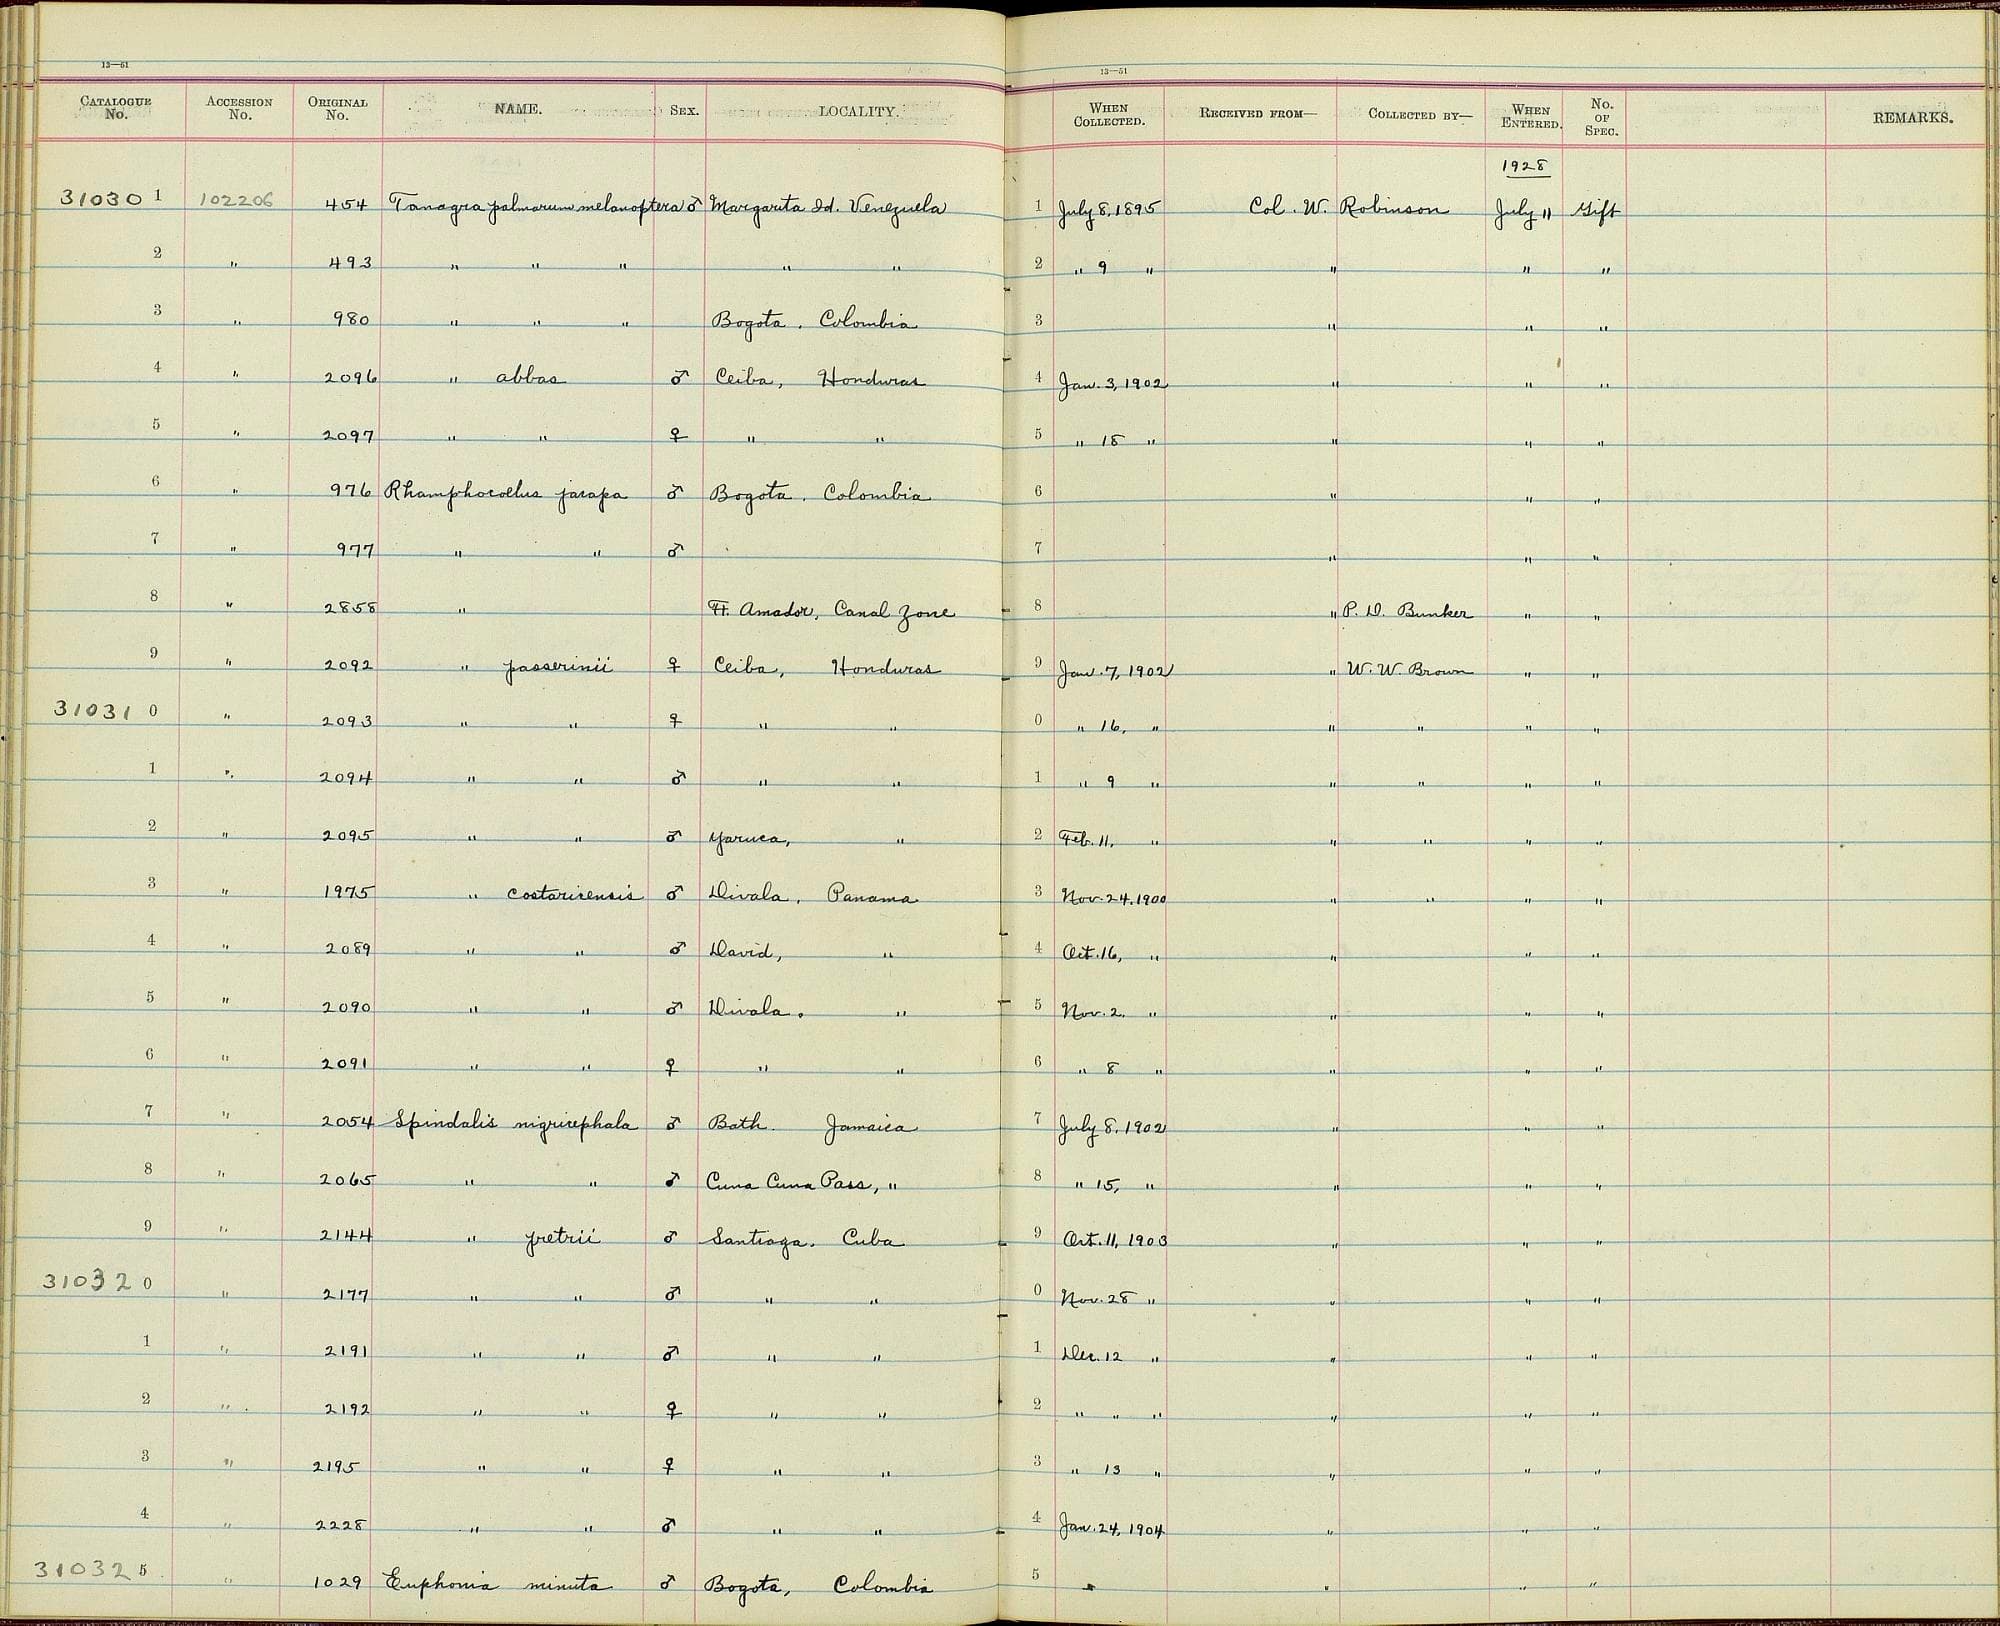 13—61
13—51
CATALOGUE No. ACCESSION No. ORIGINAL No. NAME. SEX. LOCALITY. WHEN COLLECTED. RECEIVED FROM— COLLECTED BY— WHEN ENTERED. No. OF SPEC. REMARKS.
1928
31030 1 102206 454 Tanagra palmarum melanoptera ♂ Margarita Id. Venezuela 1 July 8, 1895 Col. W. Robinson July 11 Gift
2 " 493 " " " " " 2 " 9 " " " "
3 " 980 " " " Bogota, Colombia 3 " " "
4 " 2096 " abbas ♂ Ceiba, Honduras 4 Jan. 3, 1902 " " "
5 " 2097 " " ♀ " " 5 " 18 " " " "
6 " 976 Rhamphocoelus jacapa ♂ Bogota, Colombia 6 " " "
7 " 977 " " ♂ 7 " " "
8 " 2858 " Ft. Amador, Canal Zone 8 " P. D. Bunker " "
9 " 2092 " passerinii ♀ Ceiba, Honduras 9 Jan. 7, 1902 " W. W. Brown " "
31031 0 " 2093 " " ♀ " " 0 " 16, " " " " "
1 " 2094 " " ♂ " " 1 " 9 " " " " "
2 " 2095 " " ♂ Yaruca, " 2 Feb. 11, " " " " "
3 " 1975 " costaricensis ♂ Divala, Panama 3 Nov. 24, 1900 " " " "
4 " 2089 " " ♂ David, " 4 Oct. 16, " " " "
5 " 2090 " " ♂ Divala. " 5 Nov. 2, " " " "
6 " 2091 " " ♀ " " 6 " 8 " " " "
7 " 2054 Spindalis nigricephala ♂ Bath. Jamaica 7 July 8, 1902 " " "
8 " 2065 " " ♂ Cuna Cuna Pass, " 8 " 15, " " " "
9 " 2144 " pretrii ♂ Santiago. Cuba 9 Oct. 11, 1903 " " "
31032 0 " 2177 " " ♂ " " 0 Nov. 28 " " " "
1 " 2191 " " ♂ " " 1 Dec. 12 " " " "
2 " 2192 " " ♀ " " 2 " " " " " "
3 " 2195 " " ♀ " " 3 " 13 " " " "
4 " 2228 " " ♂ " " 4 Jan. 24, 1904 " " "
31032 5 " 1029 Euphonia minuta ♂ Bogota, Colombia 5 " " "